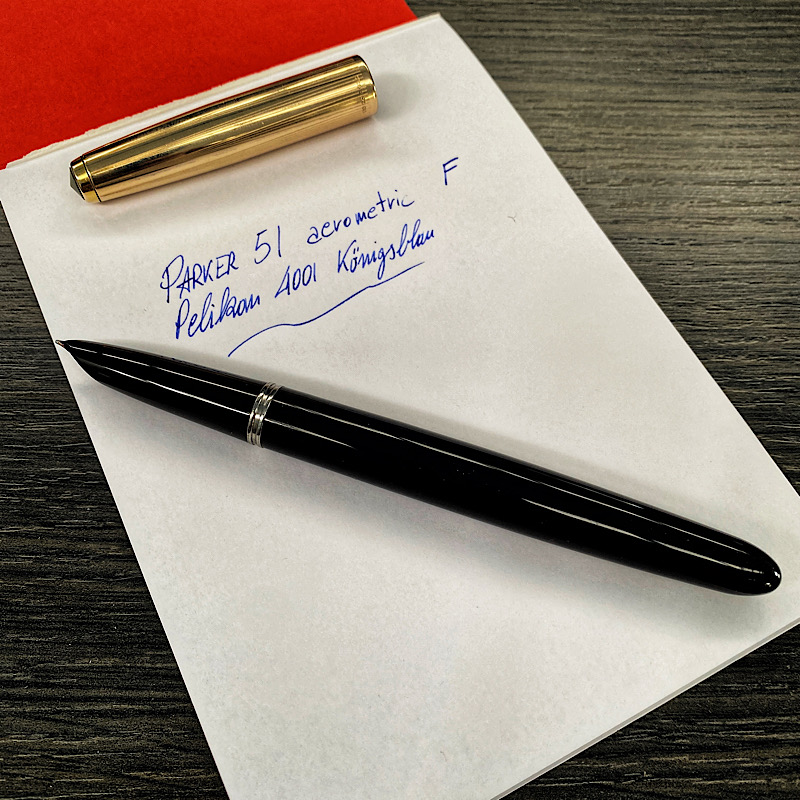 PARKER 51 aerometric F
Pelikan 4001 Königsblau